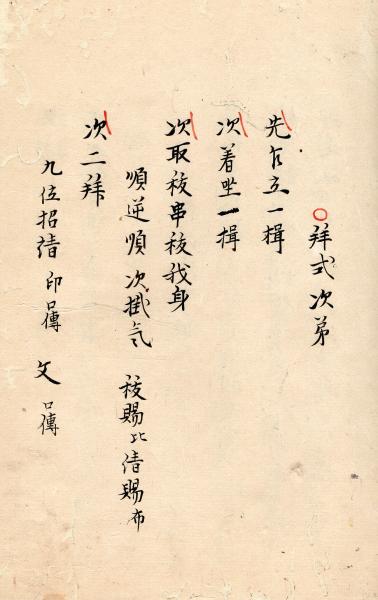 拜式次第
先乍立一揖
次着坐一揖
次取祓串祓我身
順逆順 次掛気 祓賜比倩賜布
次二拜
九位招請 印口傳 文 口傳